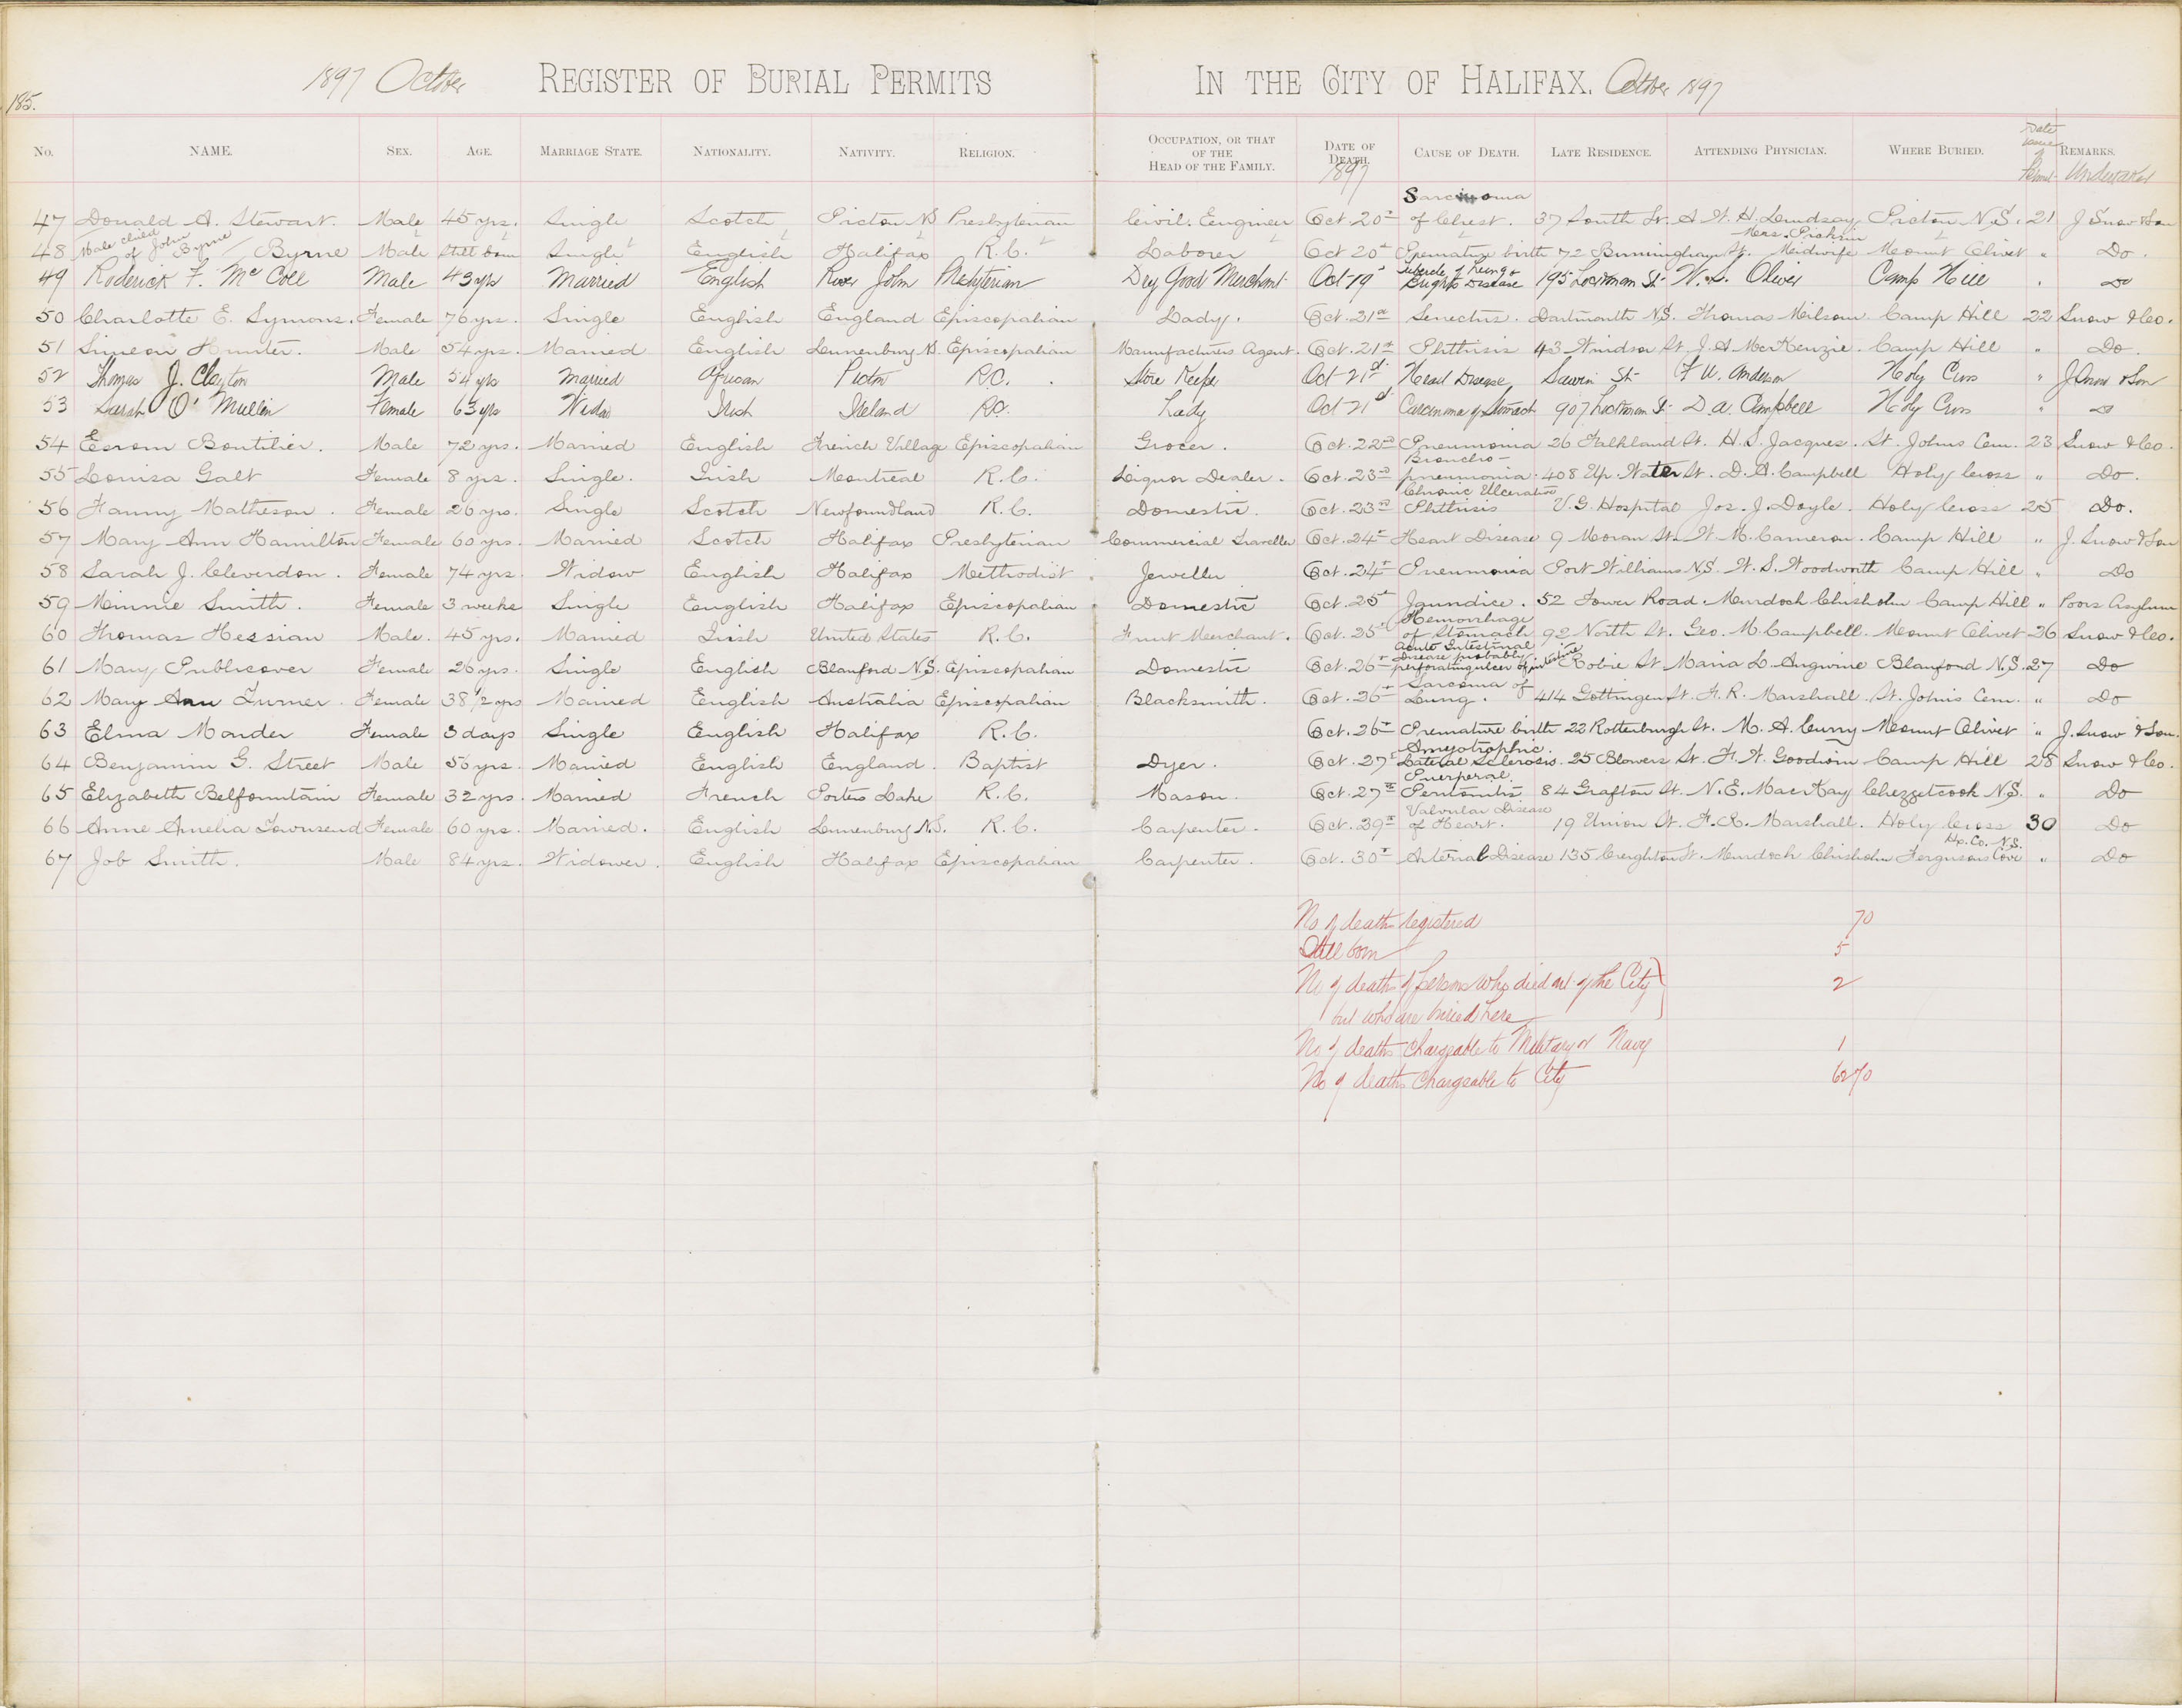 185.
1897 October REGISTER OF BURIAL PERMITS IN THE CITY OF HALIFAX. October 1897
No. NAME. SEX. AGE. MARRIAGE STATE. NATIONALITY. NATIVITY. RELIGION. OCCUPATION, OR THAT OF THE HEAD OF THE FAMILY. DATE OF DEATH. 1897 CAUSE OF DEATH. LATE RESIDENCE. ATTENDING PHYSICIAN. WHERE BURIED. Date Permit REMARKS. Undertaker
47 Donald A. Stewart. Male 45 yrs. Single Scotch Pictou NS Presbyterian Civil. Engineer Oct. 20th Sarcinoma of Chest. 37 South St. A. W. H. Lindsay Pictou N.S. 21 J Snow & Son
48 Male child of John Byrne / Byrne Male Still born Single English Halifax R.C. Laborer Oct 20th Premature birth 72 Birmingham St. Mrs. Midwife Mount Olivet " Do.
49 Roderick F. Mc Coll Male 43 yrs Married English River John Presbyterian Dry Goods Merchant Oct 19th Tubercle of Lung & Brights Disease 195 Lockman St W. S. Oliver Camp Hill " Do
50 Charlotte E. Symons. Female 76 yrs. Single English England Episcopalian Lady. Oct. 21st Senectus. Dartmouth N.S. Thomas Milsom Camp Hill 22 Snow & Co.
51 Simeon Hunter. Male 54 yrs. Married English Lunnenburg N.S. Episcopalian Manufacturers Agent. Oct. 21st Phthisis 43 Windsor St. J. A. McKenzie. Camp Hill " Do.
52 Thomas J. Clayton Male 54 yrs Married African Pictou R.C. Store Keeper Oct 21st Heart Disease St F. U. Anderson Holy Cross " J Snow & Son
53 Sarah O'Mullin Female 63 yrs Widow Irish Ireland R.C. Lady Oct 21st Carcinoma of Stomach 907 Lockman St D. A. Campbell Holy Cross " Do
54 Esrom Boutilier. Male 72 yrs. Married English French Village Episcopalian Grocer. Oct. 22nd Pneumonia 26 Falkland St. H. S. Jacques. St. Johns Cem. 23 Snow & Co.
55 Louisa Galt Female 8 yrs. Single. Irish Montreal R.C. Liquor Dealer. Oct. 23rd Broncho-pneumonia. 408 Up. Water St. D. A. Campbell Holy Cross " Do.
56 Fanny Matheson. Female 26 yrs. Single Scotch Newfoundland R.C. Domestic. Oct. 23rd Chronic Ulcerative Phthisis V. G. Hospital Jos. J. Doyle. Holy Cross 25 Do.
57 Mary Ann Hamilton Female 60 yrs. Married Scotch Halifax Presbyterian Commercial Traveller Oct. 24th Heart Disease 9 Moran St. W. M. Cameron. Camp Hill " J. Snow & Son
58 Sarah J. Cleverdon. Female 74 yrs. Widow English Halifax Methodist. Jeweller Oct. 24th Pneumonia Port Williams N.S. W. S. Woodworth Camp Hill " Do
59 Minnie Smith. Female 3 weeks Single English Halifax Episcopalian Domestic Oct. 25th Jaundice. 52 Tower Road. Murdoch Chisholm Camp Hill " Poors Asylum
60 Thomas Hessian Male. 45 yrs. Married Irish United States R.C. Fruit Merchant. Oct. 25th Hemorrhage of Stomach 92 North St. Geo. M. Campbell. Mount Olivet 26 Snow & Co.
61 Mary Publicover Female 26 yrs. Single English Blanford N.S. Episcopalian Domestic Oct. 26th Acute Intestinal Disease probably perforating ulcer of intestine Robie St Maria L. Angwine Blanford N.S. 27 Do
62 Mary Ann Turner. Female 38 1/2 yrs Married English Australia Episcopalian Blacksmith. Oct. 26th Sarcoma of Lung. 414 Gottingen St. F. R. Marshall. St. Johns Cem. " Do
63 Elma Monder Female 3 days Single English Halifax R.C. Oct. 26th Premature birth 22 Rottenburgh St. M. A. Curry Mount Olivet " J. Snow & Son.
64 Benjamin G. Street Male 56 yrs. Married English England. Baptist Dyer. Oct. 27th Amyotrophic Lateral Sclerosis. 25 Blowers St. F. W. Goodwin Camp Hill 28 Snow & Co.
65 Elizabeth Belfountain Female 32 yrs. Married French Porters Lake R.C. Mason. Oct. 27th Puerperal Peritonitis 84 Grafton St. N. E. MacKay Chezzetcook N.S. " Do
66 Anne Amelia Townsend Female 60 yrs. Married. English Lunnenburg N.S. R.C. Carpenter. Oct. 29th Valvular Disease of Heart. 19 Union St. F. R. Marshall. Holy Cross 30 Do
67 Job Smith. Male 84 yrs. Widower. English Halifax Episcopalian Carpenter. Oct. 30th Arterial Disease 135 Creighton St. Murdoch Chisholm Fergusons Cove Hx. Co. N.S. " Do
No of deaths registered 70
Still born 5
No of deaths of persons who died out of the City 2
but who are buried here
No of deaths chargeable to Military or Navy 1
No of deaths chargeable to City